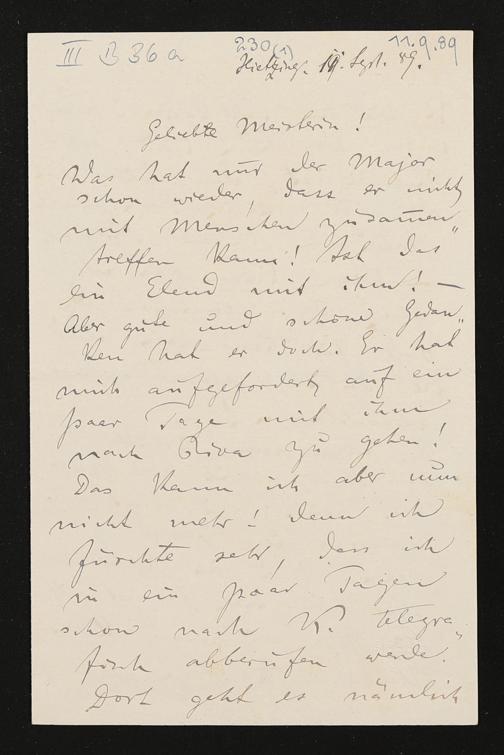 III B 36 a 230 (1) 11.9.89
Hietzing. 11. Sept. 89.
Geliebte Meisterin!
Was hat nur der Major
schon wieder, dass er nicht
mit Menschen zusamen„
treffen kann! Ist das
ein Elend mit ihm! —
Aber gute und schöne Gedan„
ken hat er doch. Er hat
mich aufgefordert, auf ein
paar Tage mit ihm
nach Riva zu gehen!
Das kann ich aber nun
nicht mehr! denn ich
fürchte sehr, dass ich
in ein paar Tagen
schon nach K. telegra„
fisch abberufen werde.
Dort geht es nämlich